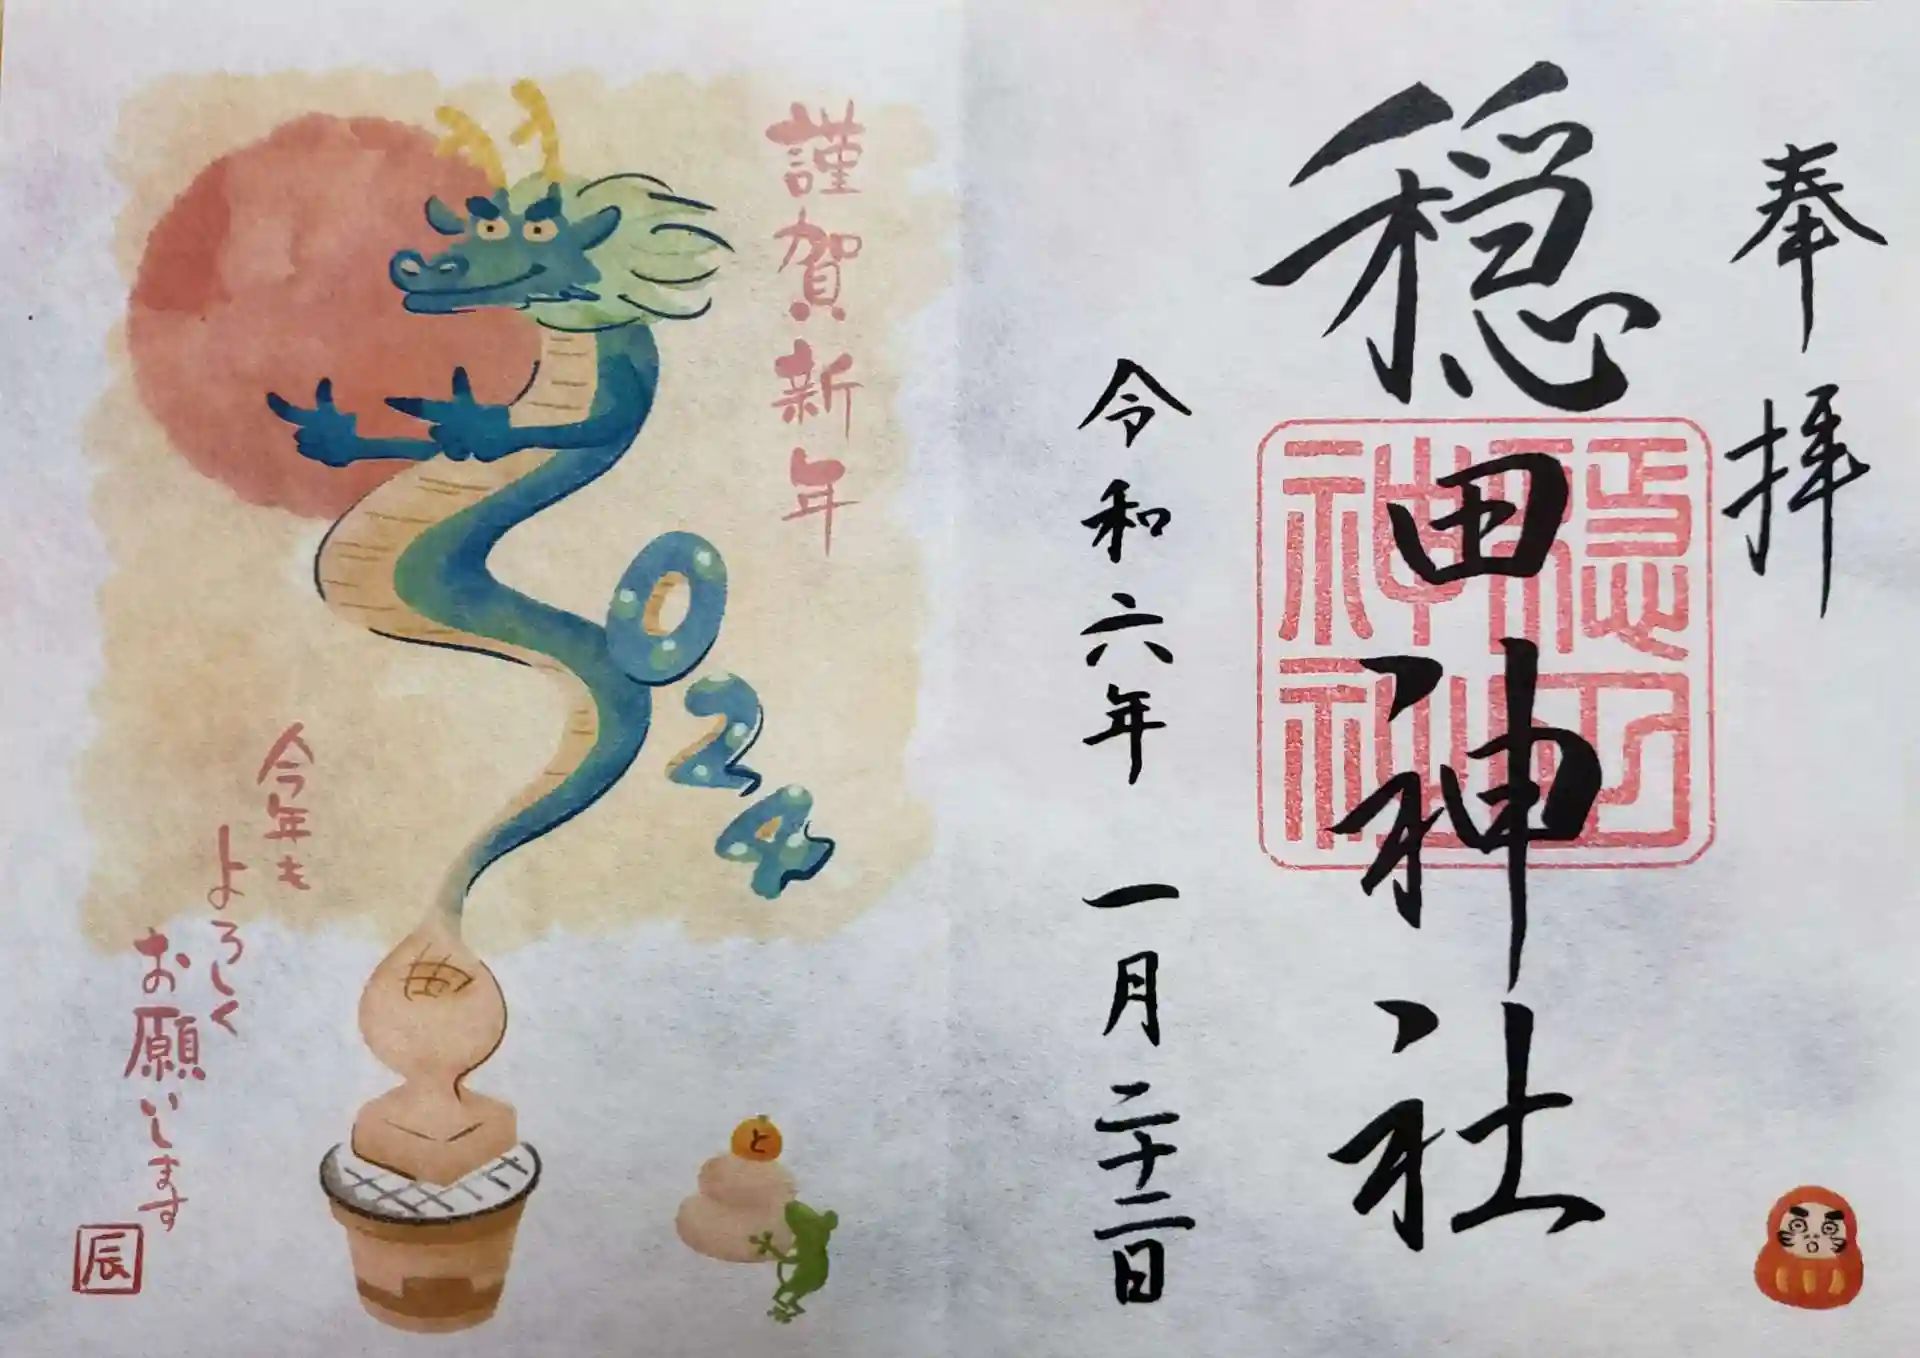 奉拝
穏田神社
穏田
神社
令和六年 一月 二十二日
謹賀新年
2024
今年も
よろしく
お願いします
辰
と